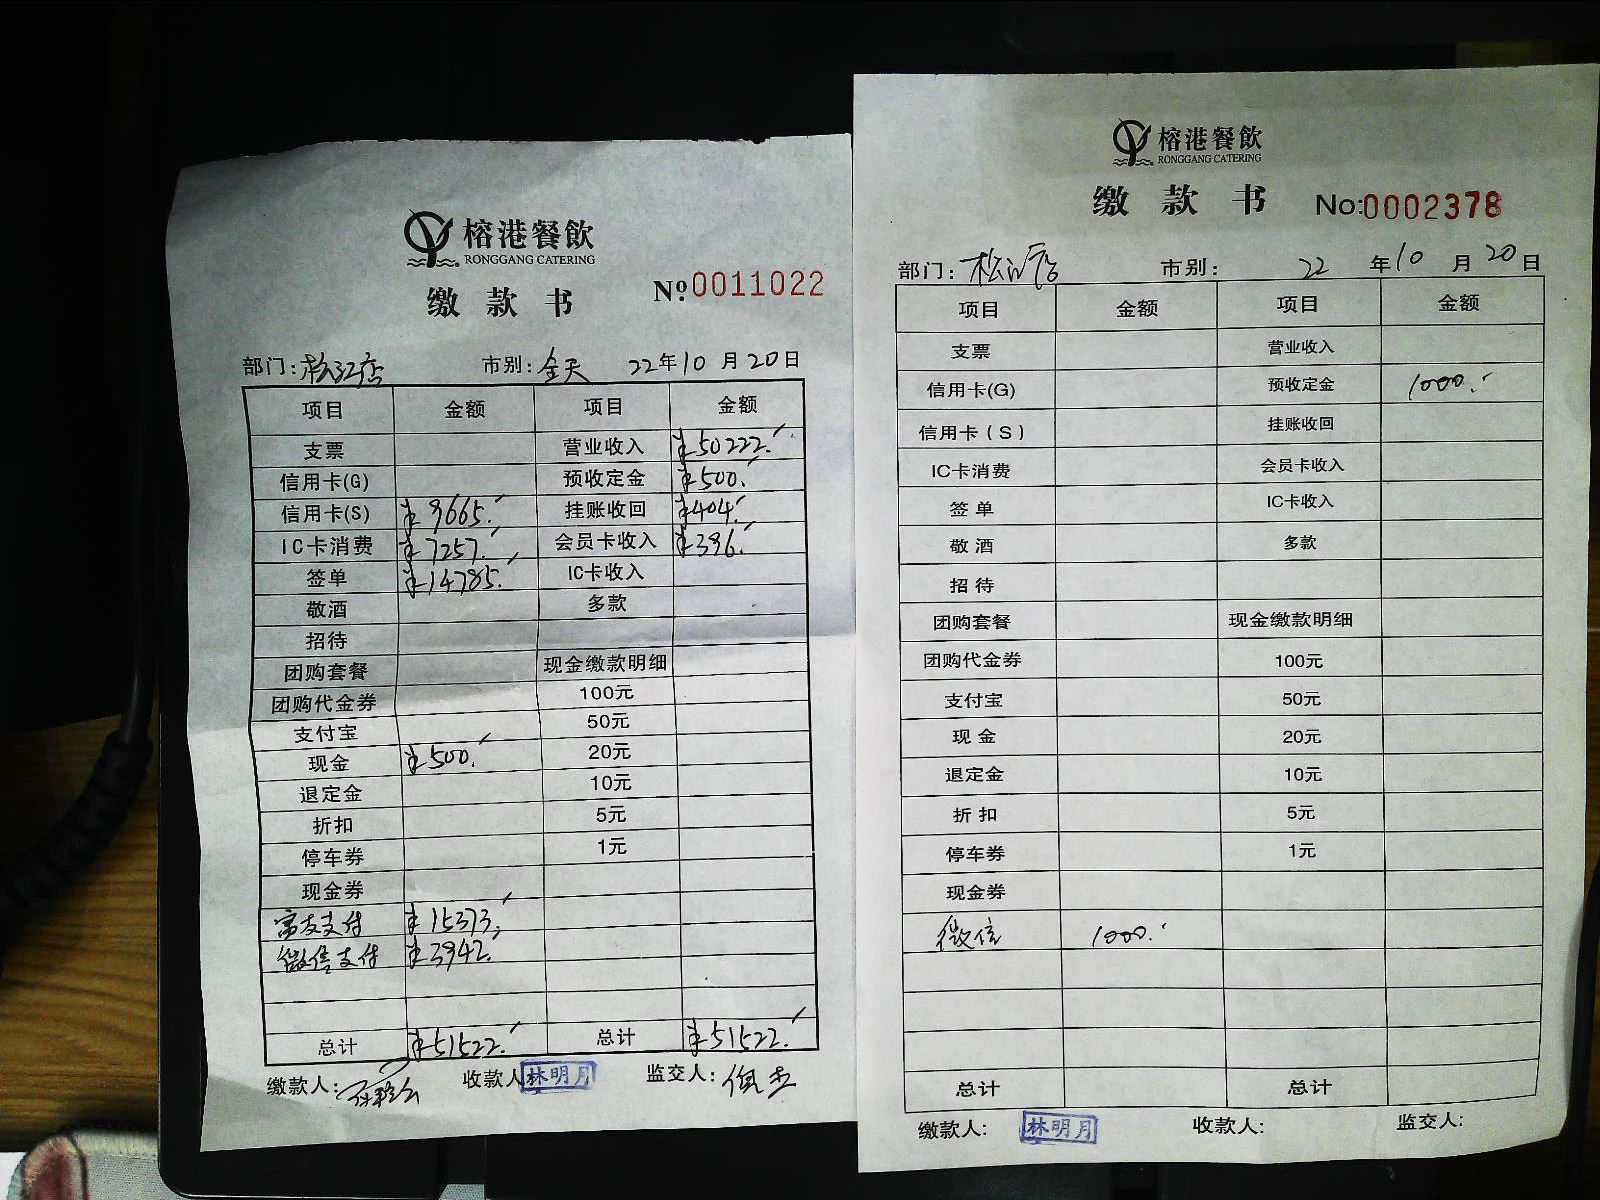 榕港餐飲
RONGGANG CATERING
缴款书 № 0011022
部门: 松江店 市别: 全天 22年10月20日
项目 金额 项目 金额
支票 营业收入 ¥50222.
信用卡(G) 预收定金 ¥500.
信用卡(S) ¥9665. 挂账收回 ¥404.
IC卡消费 ¥7257. 会员卡收入 ¥396.
签单 ¥14785. IC卡收入
敬酒 多款
招待
团购套餐 现金缴款明细
团购代金券 100元
支付宝 50元
现金 ¥500. 20元
退定金 10元
折扣 5元
停车券 1元
现金券
富友支付 ¥15373.
微信支付 ¥3942.
总计 ¥51522. 总计 ¥51522.
缴款人: 收款人 林明月 监交人:
榕港餐飲
RONGGANG CATERING
缴款书 No:0002378
部门: 松江店 市别: 22年10月20日
项目 金额 项目 金额
支票 营业收入
信用卡(G) 预收定金 1000.
信用卡(S) 挂账收回
IC卡消费 会员卡收入
签单 IC卡收入
敬酒 多款
招待
团购套餐 现金缴款明细
团购代金券 100元
支付宝 50元
现金 20元
退定金 10元
折扣 5元
停车券 1元
现金券
微信 1000.
总计 总计
缴款人: 林明月 收款人: 监交人: